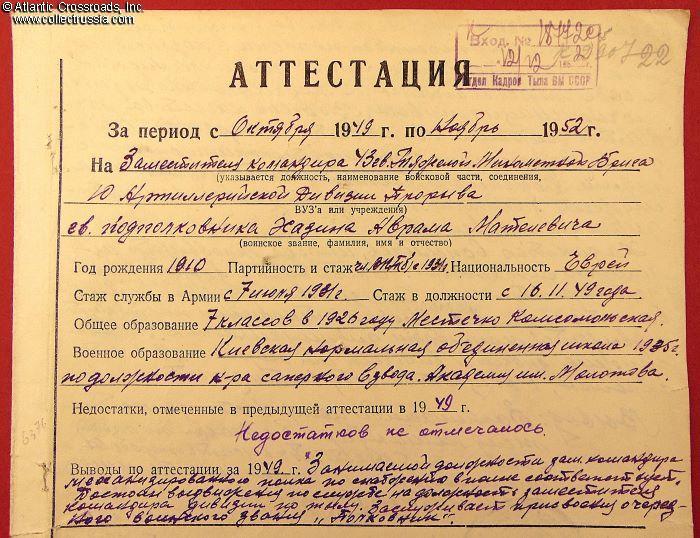 © Atlantic Crossroads, Inc.
www.collectrussia.com
Вход. №
12/12
Отдел Кадров Тыла ВМ СССР
22
АТТЕСТАЦИЯ
За период с Октября 1949 г. по Ноябрь 1952 г.
На Заместителя командира 43 св. Тяжелой Минометной Бриг.
(указывается должность, наименование войсковой части, соединения,
10 Артиллерийской Дивизии Прорыва
ВУЗ'а или учреждения)
гв. подполковника Хадина Аврама Мателевича
(воинское звание, фамилия, имя и отчество)
Год рождения 1910 Партийность и стаж чл. ВКП(б) с 1931г. Национальность Еврей
Стаж службы в Армии с 7 июля 1931г. Стаж в должности с 16.11.49 года.
Общее образование 7 классов в 1926 году Местечко Комсомольская.
Военное образование Киевская нормальная объединенная школа 1935г.
по должности к-ра саперного взвода. Академия им. Молотова.
Недостатки, отмеченные в предыдущей аттестации в 1949 г.
Недостатков не отмечалось.
Выводы по аттестации за 1949 г. Занимаемой должности зам. командира
механизированного полка по снабжению вполне соответствует.
Достоин выдвижения по службе на должность заместителя
командира дивизии по тылу. Заслуживает присвоения очеред-
ного воинского звания „Полковник".